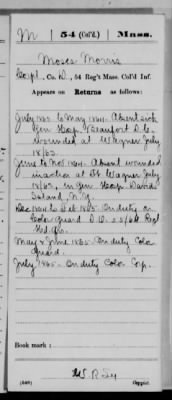 M | 54 (Col'd.) | Mass.
Moses Morris
Corpl., Co. D, 54 Reg't Mass. Col'd Inf.
Appears on
Returns as follows:
July 1863 to May 1864. Absent sick
Gen. Hosp. Beaufort S.C.
wounded at Ft Wagner July
18/63.
June to Nov 1864. Absent wounded
in action at Ft. Wagner July
18/63, in Gen. Hosp. Davids
Island, N.Y.
Dec 1864 to Feb 1865. On duty as
Color Guard
Hd. Qrs.
May & June 1865. On duty Color
Guard.
July 1865. On duty Color Corp.
Book mark:
Copyist.